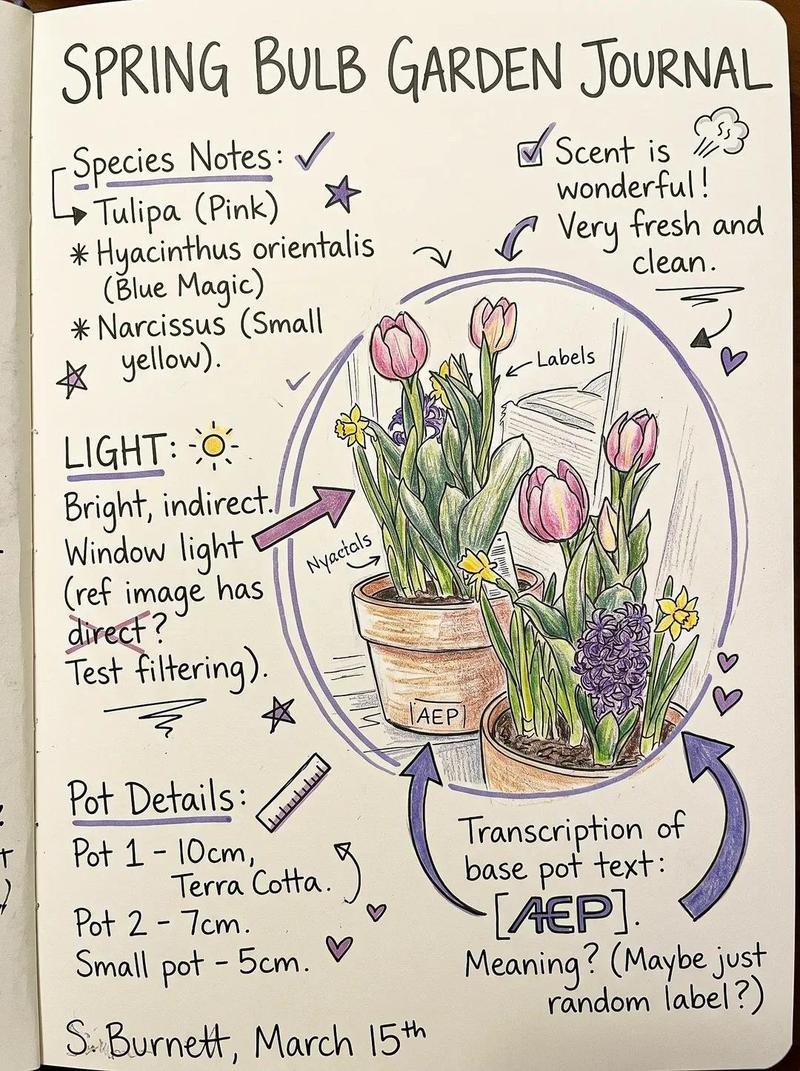 SPRING BULB GARDEN JOURNAL
Species Notes:
Tulipa (Pink)
* Hyacinthus orientalis
(Blue Magic)
* Narcissus (Small
yellow).
Scent is
wonderful!
Very fresh and
clean.
Labels
LIGHT:
Bright, indirect.
Window light
(ref image has
direct?
Test filtering).
Nyactals
AEP
Pot Details:
Pot 1 - 10cm,
Terra Cotta.
Pot 2 - 7cm.
Small pot - 5cm.
Transcription of
base pot text:
[AEP].
Meaning? (Maybe just
random label?)
S. Burnett, March 15th